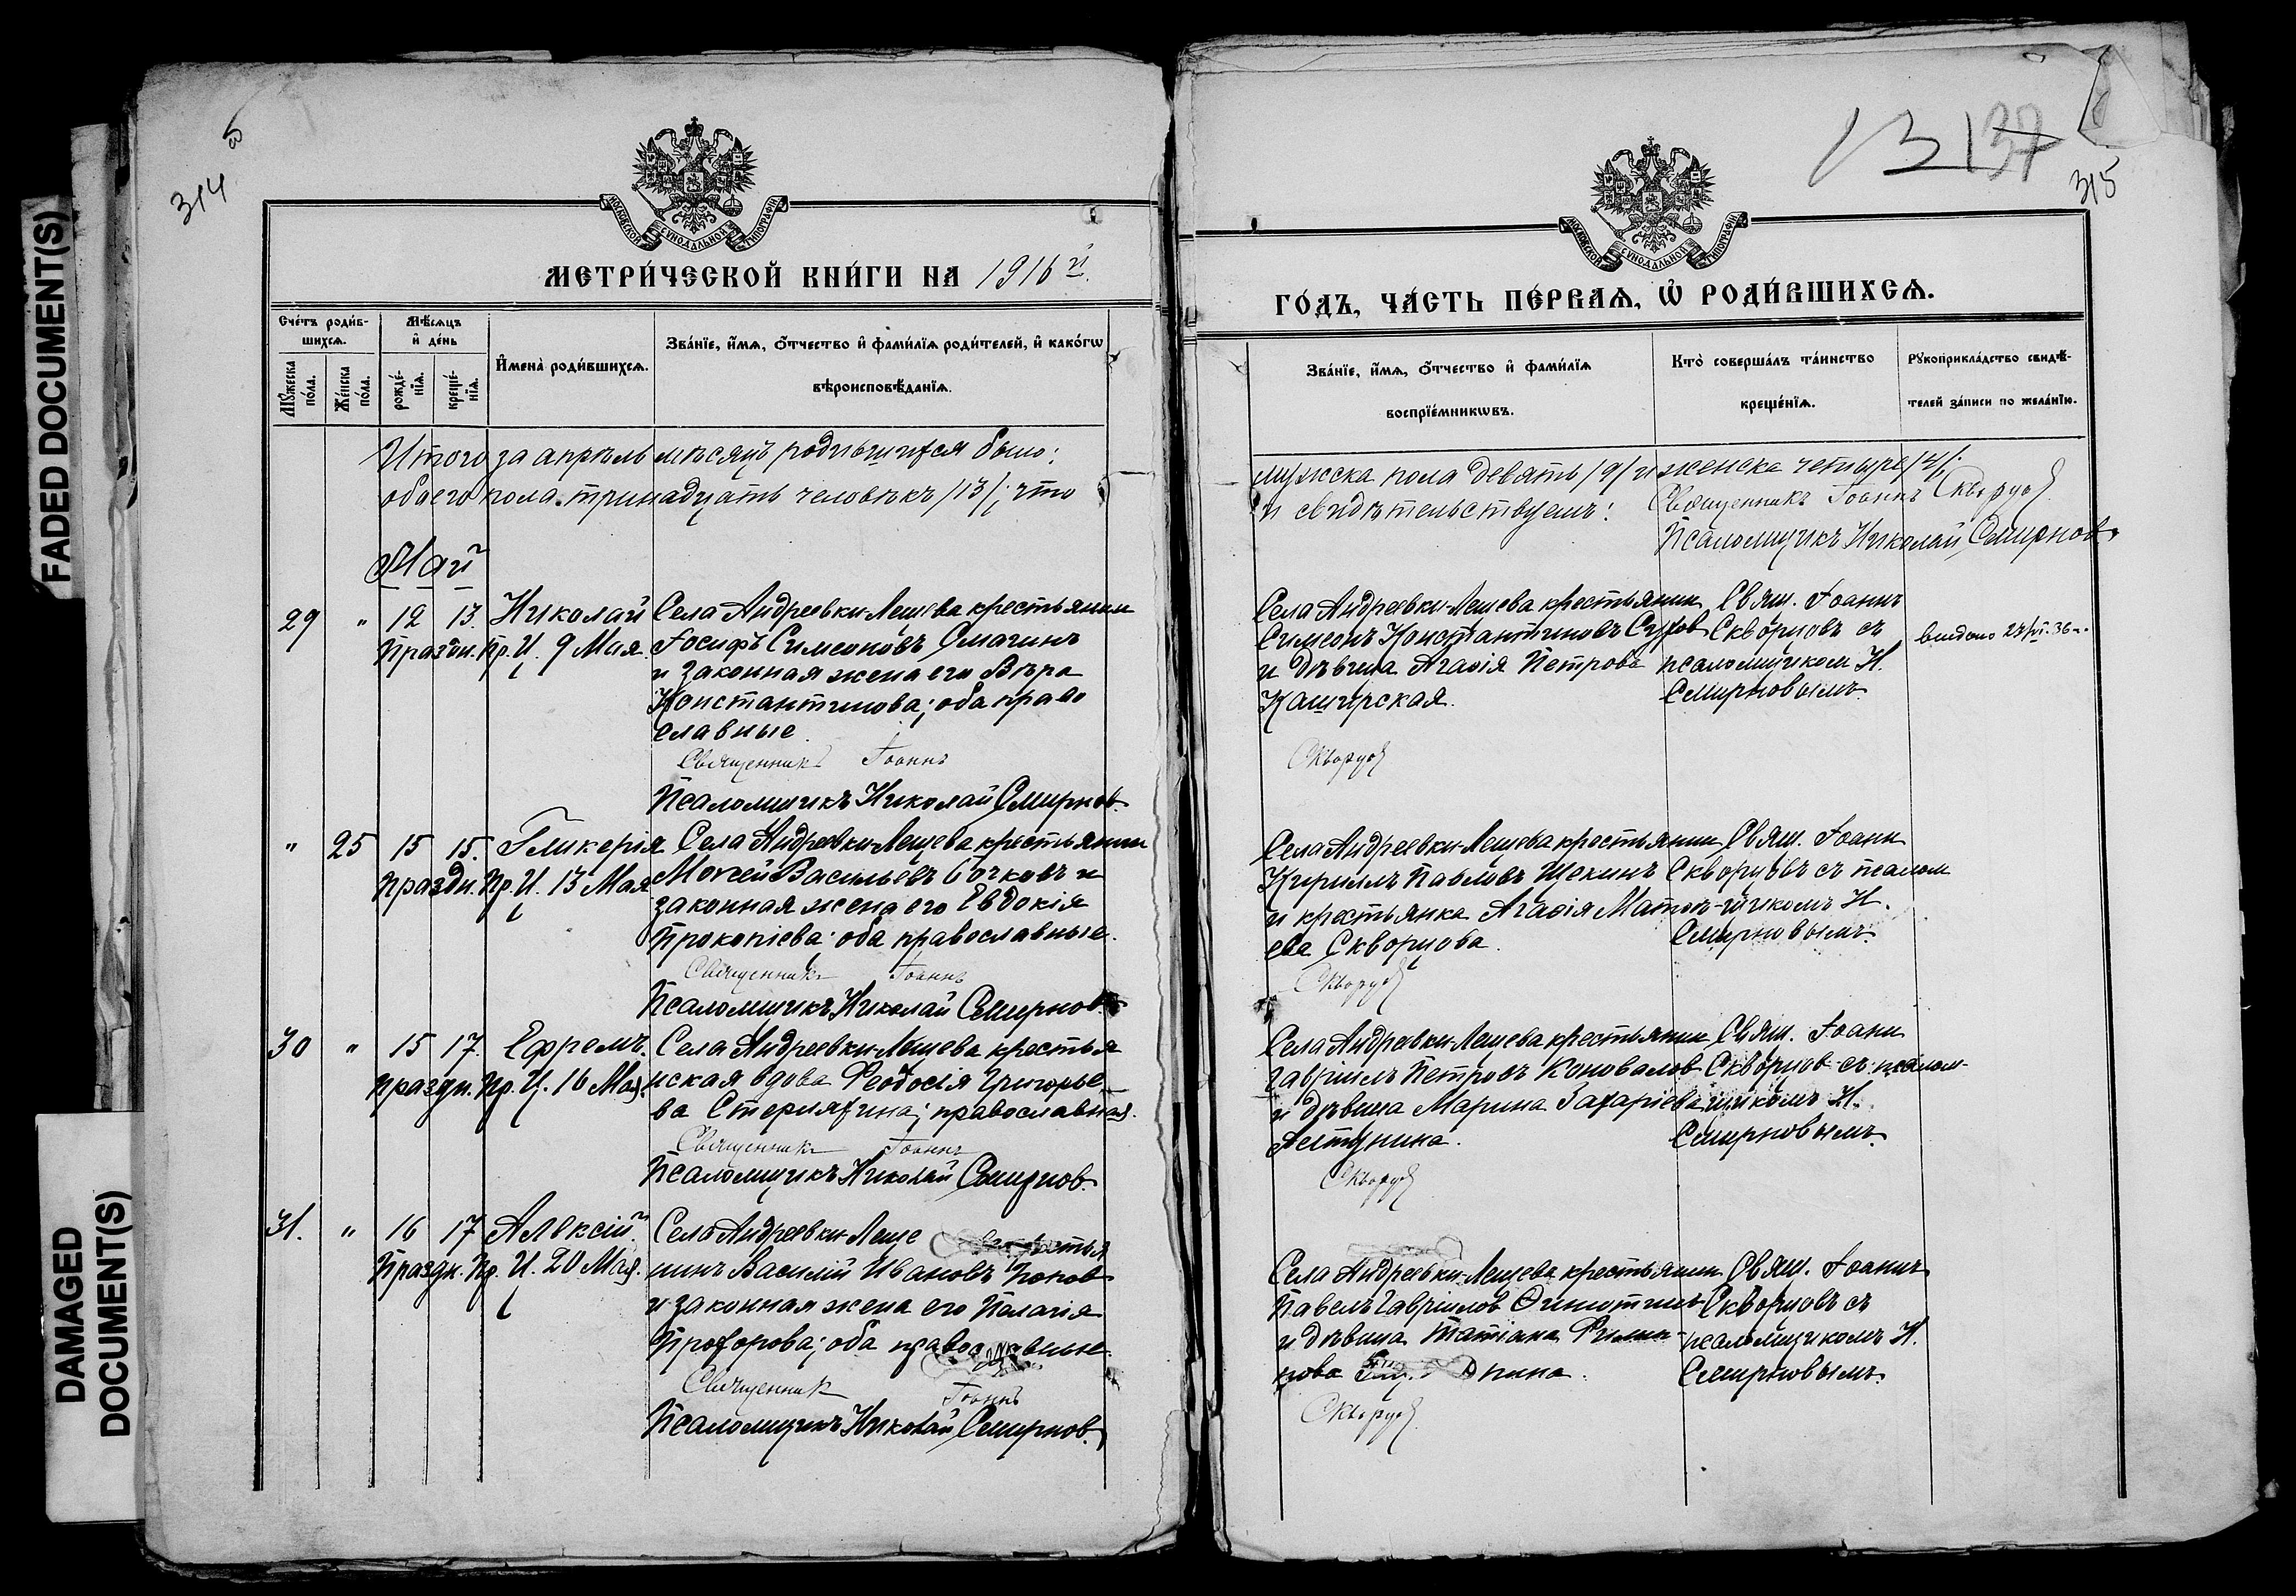 FADED DOCUMENT(S)
DAMAGED
DOCUMENT(S)
314
МОСКОВСКОЙ СУНОДАЛЬНОЙ ТИПОГРАФІИ
МЕТРИ́ЧЕСКОЙ КНИ́ГИ НА 1916 й.
Сче́тъ роди́в-
шихсѧ.
Мѣ́сѧцъ
и҆ де́нь
Мꙋ́жеска по́ла.
Же́нска по́ла.
рожде́-
нїѧ.
креще́-
нїѧ.
И҆мена̀ роди́вшихсѧ.
Зва́нїе, и҆́мѧ, ѻ҆́тчество и҆ фами́лїѧ роди́телей, и҆ како́гѡ
вѣроисповѣ́данїѧ.
Итого за апрѣль мѣсяцъ родившихся было:
обоего пола тринадцать человѣкъ /13/; что
Май
29 " 12 13. Николай Села Андреевки-Лещева крестьянин
Праздн. Пр. И. 9 Мая. Іосифъ Симеоновъ Смагинъ
и законная жена его Вѣра
Константинова; оба право
славные
Священникъ Іоаннъ
Псаломщикъ Николай Смирнов.
" 25 15 15. Гликерія Села Андреевки-Лещева крестьянин
Праздн. Пр. И. 13 Мая Моисей Васильевъ Бочковъ и
законная жена его Евдокія
Прокопіева; оба православные.
Священникъ Іоаннъ
Псаломщикъ Николай Смирнов.
30 " 15 17. Ефремъ. Села Андреевки-Лещева крестья
Праздн. Пр. И. 16 Мая. нская вдова Феодосія Григорье
ва Стерлягина; православная.
Священникъ Іоаннъ
Псаломщикъ Николай Смирнов.
31. " 16 17 Алексій. Села Андреевки-Леще
Праздн. Пр. И. 20 Мая. нинъ Василій Ивановъ Попов
и законная жена его Пелагія
Прохорова; оба
Священникъ Іоаннъ
Псаломщикъ Николай Смирнов.
315
137
МОСКОВСКОЙ СУНОДАЛЬНОЙ ТИПОГРАФІИ
ГО́ДЪ, ЧА́СТЬ ПЕ́РВАѦ, Ѡ҆ РОДИ́ВШИХСѦ.
Зва́нїе, и҆́мѧ, ѻ҆́тчество и҆ фами́лїѧ
воспрїе́мникѡвъ.
Кто̀ соверша́лъ та́инство
креще́нїѧ.
Рꙋкоприкла́дство свидѣ́-
телей за́писи по жела́нїю.
мужска пола девять /9/ и женска четыре /4/;
и свидѣтельствуемъ: Священникъ Іоаннъ Скворцов
Псаломщикъ Николай Смирнов.
Села Андреевки-Лещева крестьянин
Симеонъ Константиновъ
и дѣвица Агафія Петрова
Каширская.
Свящ. Іоаннъ
Скворцовъ съ
псаломщиком Н.
Смирновымъ.
Скворцов
Села Андреевки-Лещева крестьянин
Кириллъ Павловъ Щекинъ
и крестьянка Агафія Матѳ-
ева Скворцова.
Свящ. Іоанн
Скворцовъ съ псалом
щикомъ Н.
Смирновымъ.
Скворцов
Села Андреевки-Лещева крестьянин
Гавріилъ Петровъ Коновалов
и дѣвица Марина Захаріева
Свящ. Іоанн
Скворцов съ псалом-
щикомъ Н.
Смирновымъ.
Скворцов
Села Андреевки-Лещева крестьянин
Павелъ Гавріилов
и дѣвица Татіана Филип-
пова
Свящ. Іоаннъ
Скворцовъ съ
псаломщикомъ Н.
Смирновымъ.
Скворцов